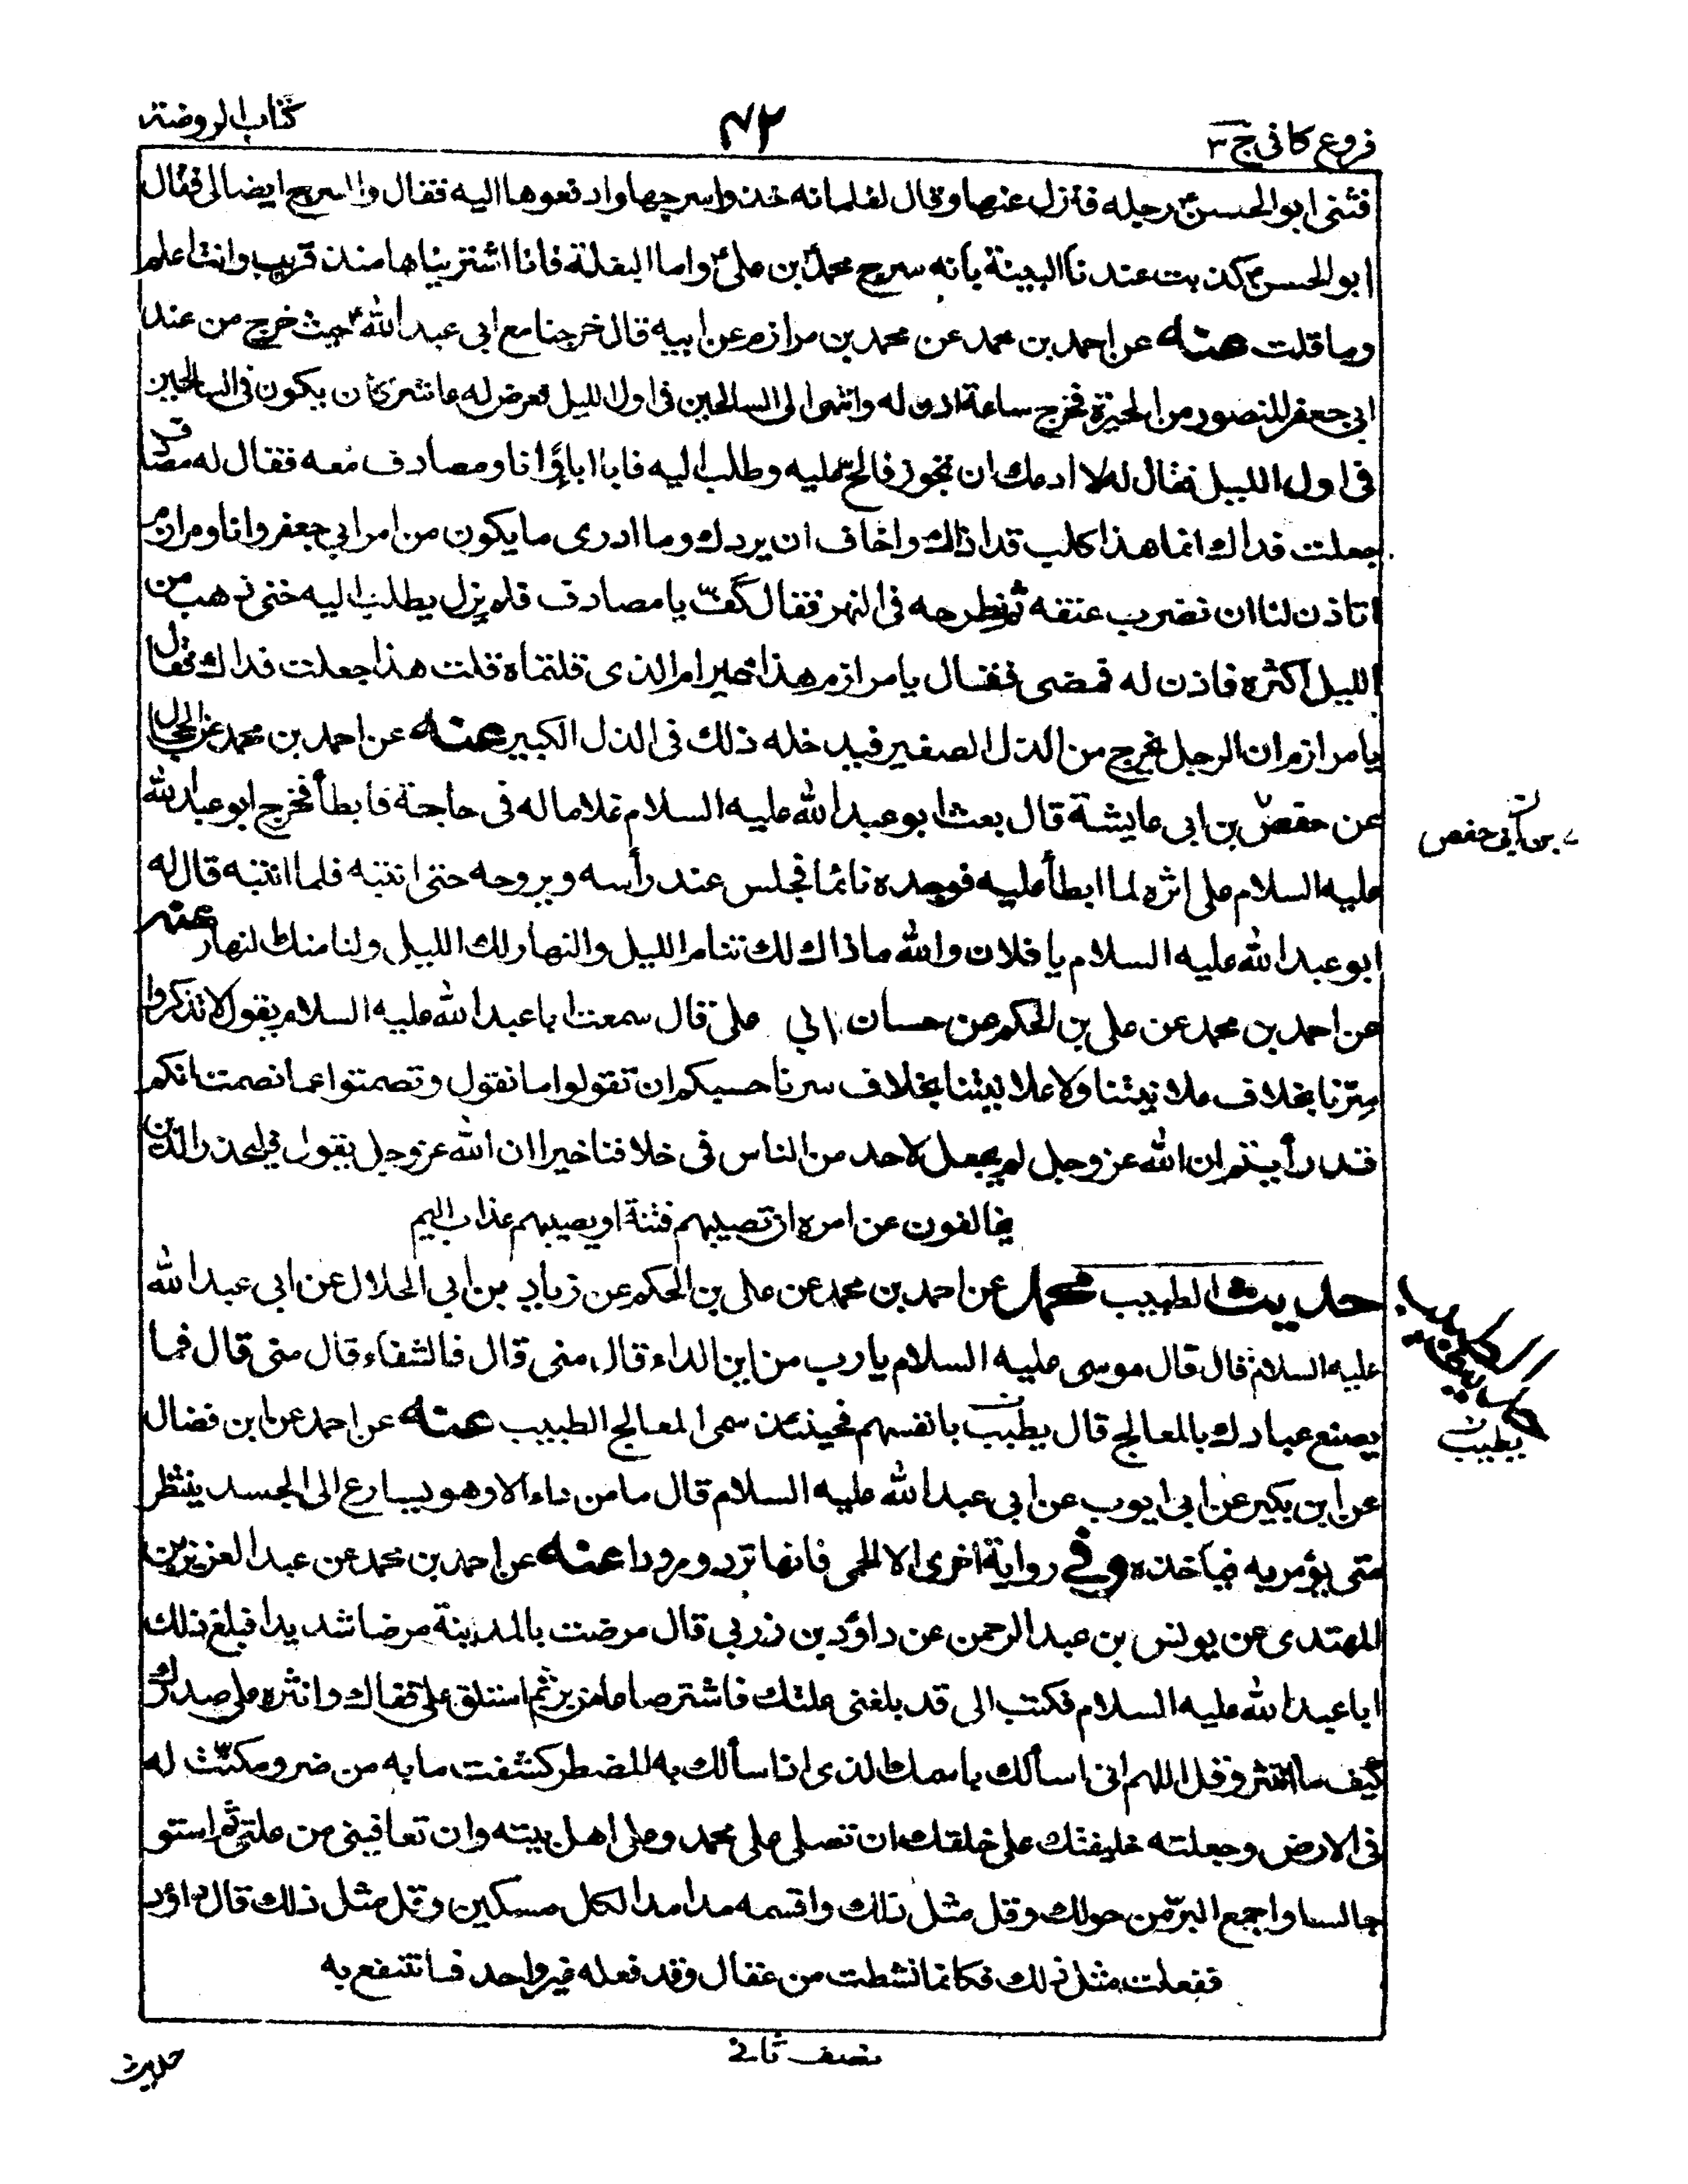 فروع كافى ج ٣
٤٢
كتاب الروضة
فثنى ابو الحسن؏ رجله فنزل عنها وقال لغلمانه خذوا سرجها وادفعوها اليه فقال والسرج ايضا لى فقال
ابو الحسن؏ كذبت عندنا البينة بانه سرج محمد بن على؏ واما البغلة فانا اشتريناها منذ قريب وانت اعلم
وما قلت عنه عن احمد بن محمد عن محمد بن مرازم عن ابيه قال خرجنا مع ابى عبد الله؏ حيث خرج من عند
ابى جعفر المنصور من الحيرة فخرج ساعة اذن له وانتهى الى السالحين فى اول الليل فعرض له عاشر كان يكون فى السالحين
فى اول الليل فقال له لا ادعك ان تجوز فالح عليه وطلب اليه فابا اباءً وانا ومصادف معه فقال له مصادف
جعلت فداك انما هذا كلب قد اذاك واخاف ان يردك وما ادرى ما يكون من امر ابى جعفر وانا ومرازم
اتاذن لنا ان نضرب عنقه ثم نطرحه فى النهر فقال كفّ يا مصادف فلم يزل يطلب اليه حتى ذهب من
الليل اكثره فاذن له فمضى فقال يا مرازم هذا خير ام الذى قلتماه قلت هذا جعلت فداك فقال
يا مرازم ان الرجل يخرج من الذل الصغير فيدخله ذلك فى الذل الكبير عنه عن احمد بن محمد عن الحجال
عن حفص بن ابى عايشة قال بعث ابو عبد الله عليه السلام غلاما له فى حاجة فابطأ فخرج ابو عبد الله
بن ابى حفص
عليه السلام على اثره لما ابطأ عليه فوجده نائما فجلس عند رأسه ويروحه حتى انتبه فلما انتبه قال له
ابو عبد الله عليه السلام يا فلان والله ما ذاك لك تنام الليل والنهار لك الليل ولنا منك النهار عنه
عن احمد بن محمد عن على بن الحكم عن حسان ابى على قال سمعت ابا عبد الله عليه السلام يقول لا تذكروا
سرّنا بخلاف علانيتنا ولا علانيتنا بخلاف سرنا حسبكم ان تقولوا ما نقول وتصمتوا عما نصمت انكم
قد رأيتم ان الله عز وجل لم يجعل لاحد من الناس فى خلافنا خيرا ان الله عز وجل يقول فليحذر الذين
يخالفون عن امره ان تصيبهم فتنة او يصيبهم عذاب اليم
حديث الطبيب محمد عن احمد بن محمد عن على بن الحكم عن زياد بن ابى الحلال عن ابى عبد الله
عليه السلام قال قال موسى عليه السلام يا رب من اين الداء قال منى قال فالشفاء قال منى قال فما
يصنع عبادك بالمعالج قال يطبب بانفسهم فحينئذ سمى المعالج الطبيب عنه عن احمد عن ابن فضال
يطيب
عن ابن بكير عن ابى ايوب عن ابى عبد الله عليه السلام قال ما من داء الا وهو يسارع الى الجسد ينتظر
متى يؤمر به فيأخذه وفي رواية اخرى الا الحمى فانها ترد ورودا عنه عن احمد بن محمد عن عبد العزيز بن
المهتدى عن يونس بن عبد الرحمن عن داؤد بن زربى قال مرضت بالمدينة مرضا شديدا فبلغ ذلك
ابا عبد الله عليه السلام فكتب الى قد بلغنى علتك فاشتر صاعا من بر ثم استلق على قفاك وانثره على صدرك
كيف ما انتثر وقل اللهم انى اسألك باسمك الذى اذا سألك به المضطر كشفت ما به من ضر ومكنّت له
فى الارض وجعلته خليفتك على خلقك ان تصلى على محمد وعلى اهل بيته وان تعافينى من علتى ثم استو
جالسا واجمع البرّ من حولك وقل مثل ذلك واقسمه مدا مدا لكل مسكين وقل مثل ذلك قال داؤد
ففعلت مثل ذلك فكانما نشطت من عقال وقد فعله غير واحد فانتفع به
نصف ثانى
حديث